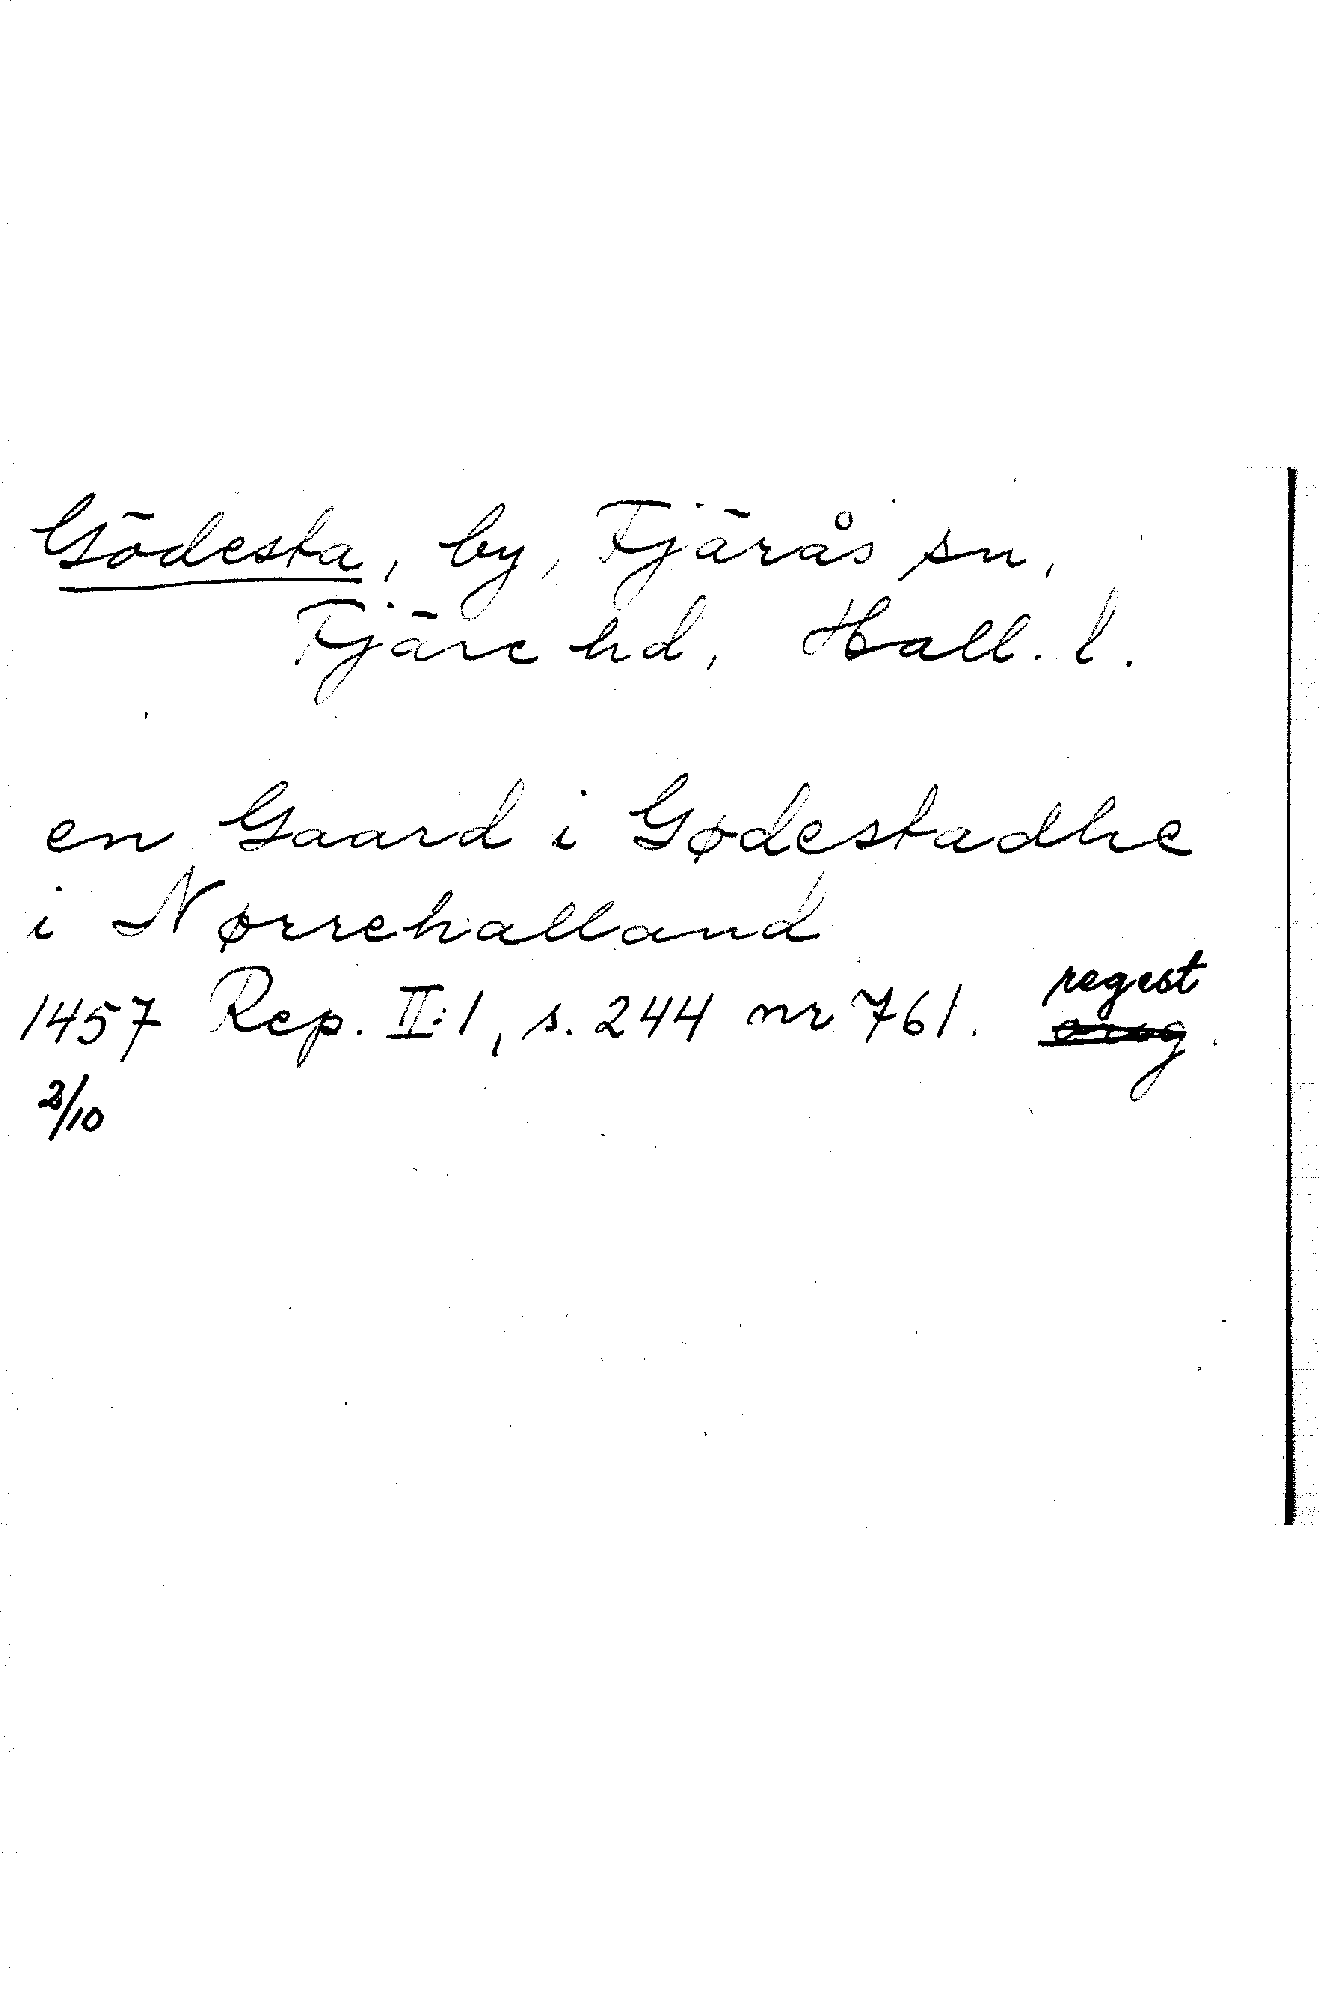 Gödesta, by, Fjärås sn,
Fjäre hd, Hall. l.
en Gaard i Gødestadhe
i Nørrehalland
1457 Rep. II:1, s. 244 nr 761. regest
2/10